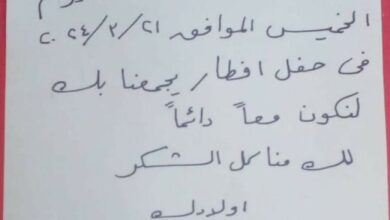 الخميس الموافق ٢٠٢٤/٣/٢١
فى حفل افطار يجمعنا بك
لنكون معاً دائماً
لك منا كل الشكر
اولادك